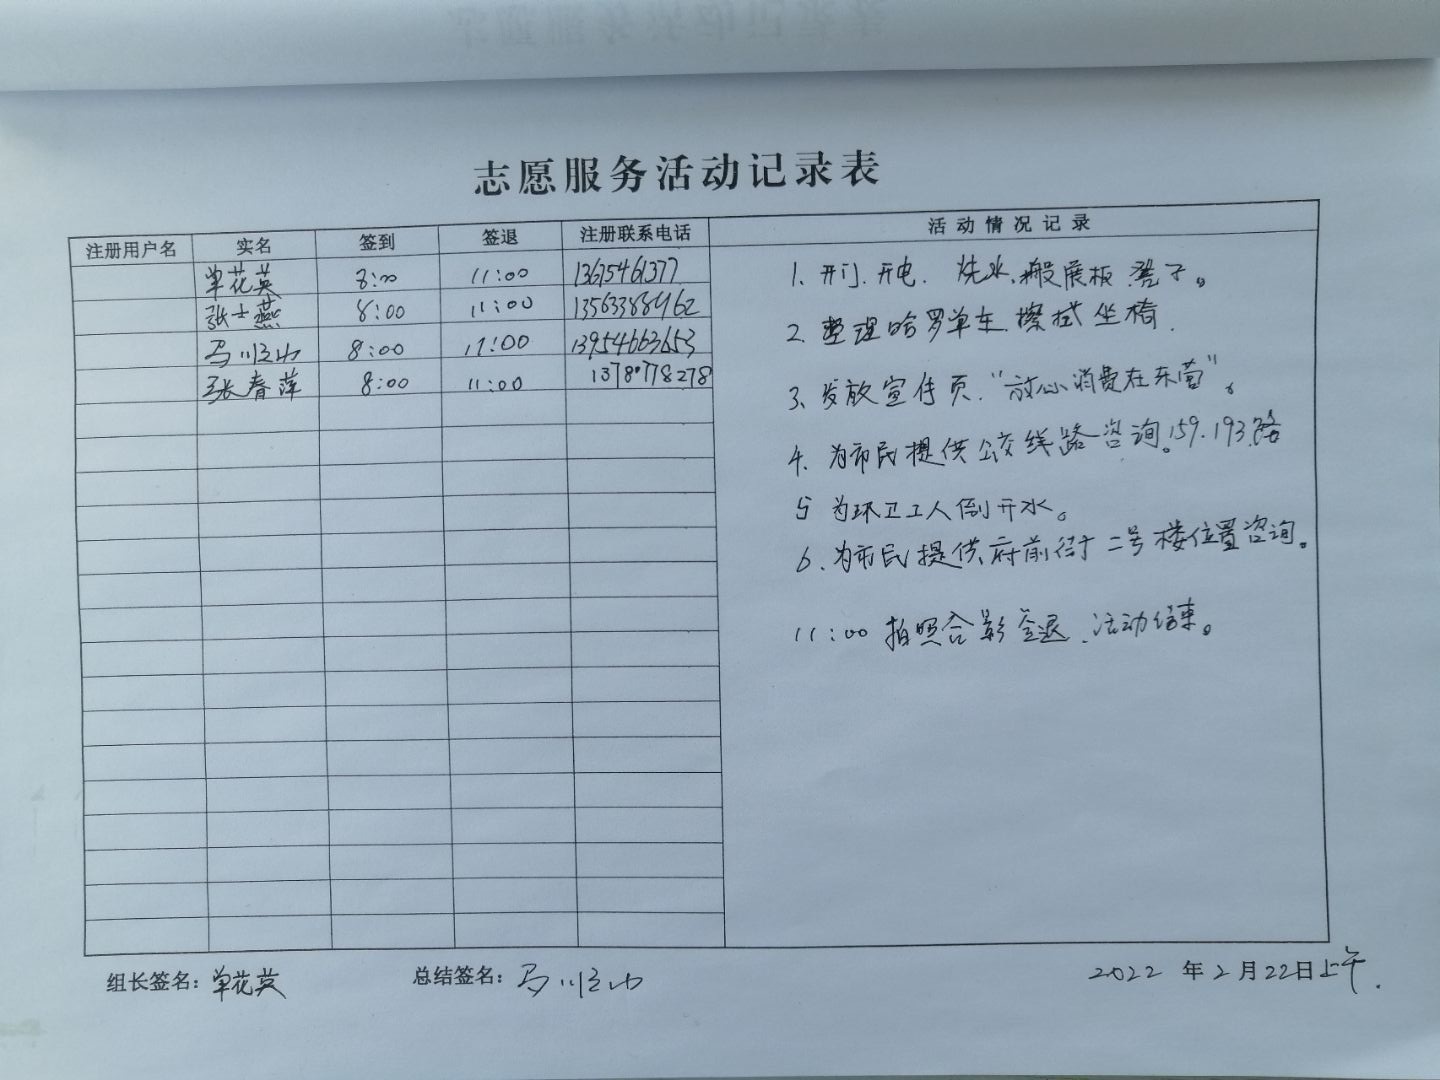 志愿服务活动记录表
注册用户名 实名 签到 签退 注册联系电话 活动情况记录
单花英 8:00 11:00 13675461377
张士燕 8:00 11:00 13563388962
马顺山 8:00 11:00 13954663653
张春萍 8:00 11:00 1378778278
1. 开门.开电. 烧水.搬展板.凳子。
2. 整理哈罗单车.擦拭坐椅.
3、发放宣传页."放心消费在东营"。
4. 为市民提供公交线路咨询。159.193路
5 为环卫工人倒开水。
6、为市民提供府前街二号楼位置咨询。
11:00 拍照合影签退.活动结束。
组长签名：单花英 总结签名：马顺山 2022年2月22日上午.